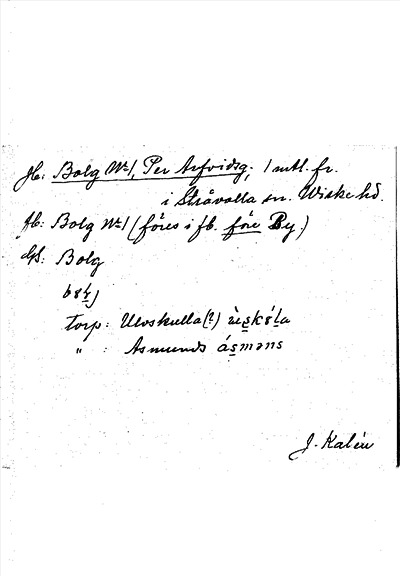 Jb: Bolg No 1, Per Arfvidsg, 1 mtl. fr.
i Stråvalla sn. Wiske hd.
fb: Bolg No 1 (föres i jb. före By.)
Gs: Bolg
torp: Ulvskulla (?)
" : Åsmunds ásməns
J. Kalén